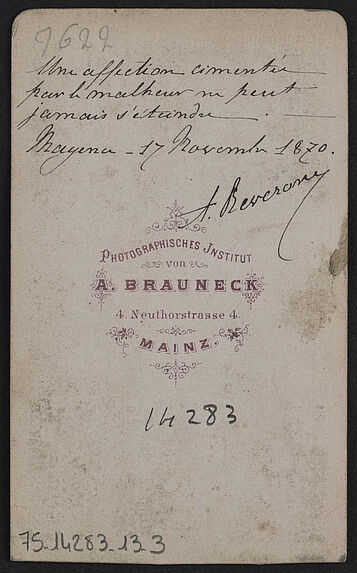 7622
Une affection cimentée
par le malheur ne peut
jamais s'éteindre.
Mayence - 17 Novembre 1870.
A. Beverony
PHOTOGRAPHISCHES INSTITUT
von
A. BRAUNECK
4. Neuthorstrasse 4.
MAINZ.
14283
75-14283-13-3